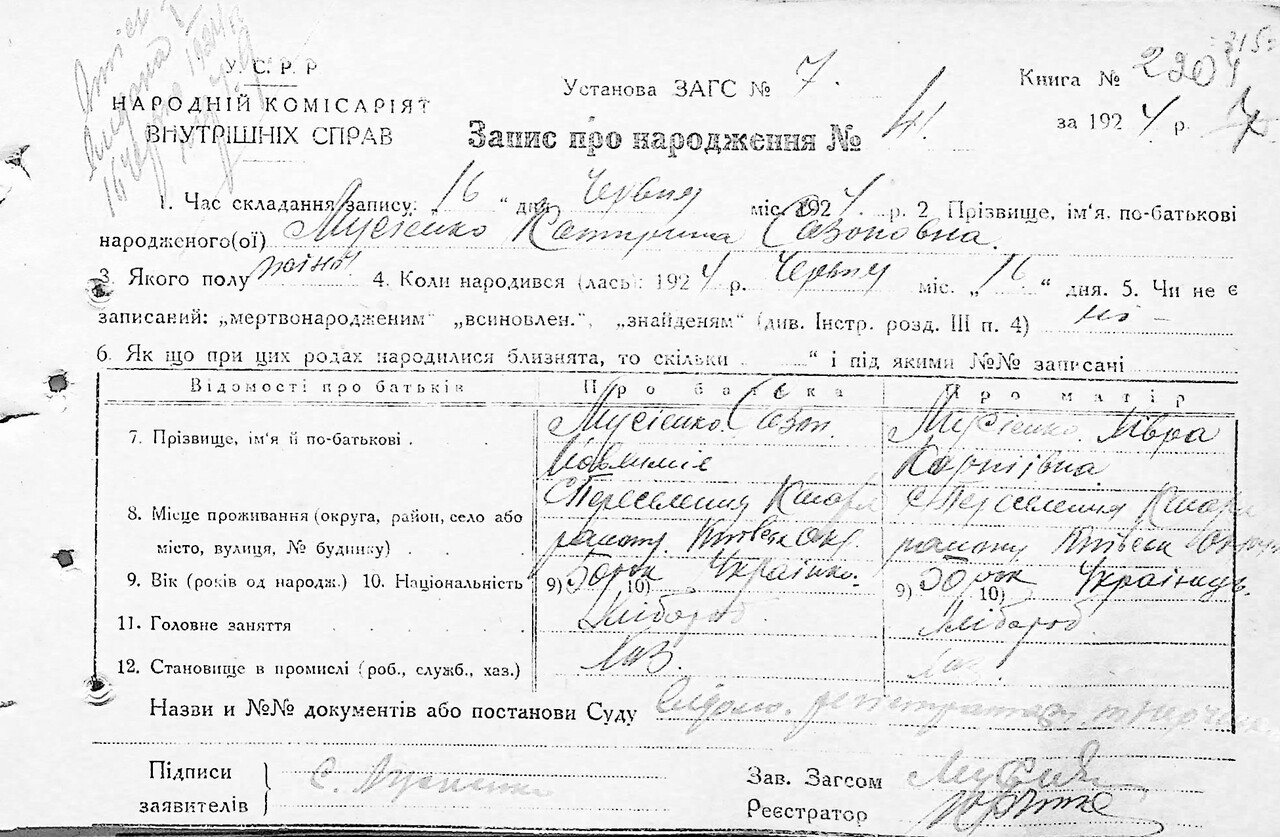 У. С. Р. Р
НАРОДНІЙ КОМІСАРІЯТ
ВНУТРІШНІХ СПРАВ
Установа ЗАГС № 7.
Книга № 2204
за 1924 р.
Запис про народження № 41.
1. Час складання запису: „16“ дня Червня міс. 1924 р. 2 Прізвище, ім‘я, по-батькові
народженого(ої) Мусієнко Катерина Сазоновна.
3. Якого полу жіноч. 4. Коли народився (лась): 1924 р. Червня міс. „16“ дня. 5. Чи не є
записаний: „мертвонародженим“ „всиновлен.“, „знайденям“ (див. Інстр. розд. III п. 4) ні –
6. Як що при цих родах народилися близнята, то скільки “ і під якими №№ записані
Відомості про батьків Про батька Про матір
7. Прізвище, ім‘я й по-батькові . Мусієнко Сазон Мусієнко Мівра
Карпівна
8. Місце проживання (округа, район, село або с Переселения Кагарл с Переселения Кагарл
місто, вулиця, № будинку) району Київськ Окр. району Київськ Округи
9. Вік (років од народж.) 10. Національність 9) 50 рок 10) Українко. 9) 50 рок 10) Українець.
11. Головне заняття Хлібороб Хлібороб.
12. Становище в промислі (роб., служб., хаз.) Хаз. Хаз.
Назви и №№ документів або постанови Суду
Підписи
заявителів
С. Мусиенко
Зав. Загсом
Реєстратор